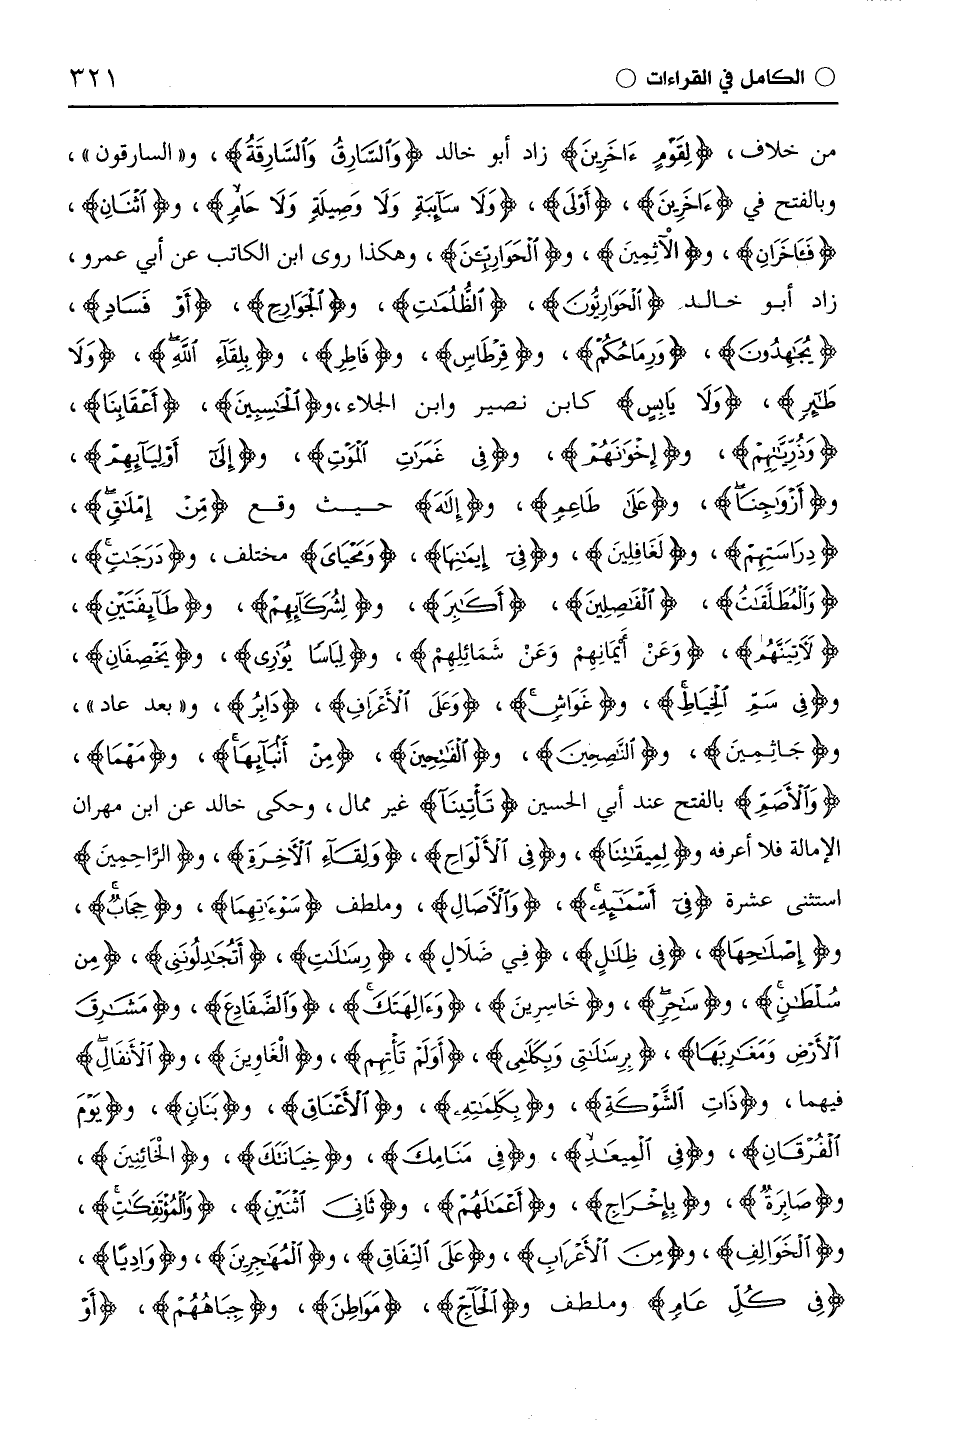 ○ الكامل في القراءات ○ ٣٢١
من خلاف، ﴿لِقَوْمٍ ءَاخَرِينَ﴾ زاد أبو خالد ﴿وَٱلسَّارِقُ وَٱلسَّارِقَةُ﴾، و«السارقون»،
وبالفتح في ﴿ءَاخَرِينَ﴾، ﴿أَوْلَى﴾، ﴿وَلَا سَآئِبَةٍ وَلَا وَصِيلَةٍ وَلَا حَامٍ﴾، و﴿ٱثْنَانِ﴾،
﴿فَـَٔاخَرَانِ﴾، و﴿الْآثِمِينَ﴾، و﴿ٱلْحَوَارِيِّـۧنَ﴾، وهكذا روى ابن الكاتب عن أبي عمرو،
زاد أبو خالد ﴿ٱلْحَوَارِيُّونَ﴾، ﴿ٱلظُّلُمَٰتِ﴾، و﴿ٱلْجَوَارِحِ﴾، ﴿أَوْ فَسَادٍ﴾،
﴿يُجَٰهِدُونَ﴾، ﴿وَرِمَاحُكُمْ﴾، و﴿قِرْطَاسٍ﴾، و﴿فَاطِرِ﴾، و﴿بِلِقَآءِ ٱللَّهِ﴾، ﴿وَلَا
طَٰٓئِرٍ﴾، ﴿وَلَا يَابِسٍ﴾ كابن نصير وابن الجلاء، و﴿ٱلْحَٰسِبِينَ﴾، ﴿أَعْقَابِنَا﴾،
﴿وَذُرِّيَّٰتِهِمْ﴾، و﴿إِخْوَٰنَهُمْ﴾، و﴿فِى غَمَرَٰتِ ٱلْمَوْتِ﴾، و﴿إِلَىٰٓ أَوْلِيَآئِهِمْ﴾،
و﴿أَزْوَٰجِنَا﴾، و﴿عَلَىٰ طَاعِمٍ﴾، و﴿إِلَٰهَ﴾ حيث وقع ﴿مِّنْ إِمْلَٰقٍ﴾،
﴿دِرَاسَتِهِمْ﴾، و﴿لَغَٰفِلِينَ﴾، و﴿فِىٓ إِيمَٰنِهَا﴾، ﴿وَمَحْيَاىَ﴾ مختلف، و﴿دَرَجَٰتٍ﴾،
﴿وَٱلْمُطَلَّقَٰتُ﴾، ﴿ٱلْفَٰصِلِينَ﴾، ﴿أَكَٰبِرَ﴾، و﴿لِشُرَكَآئِهِمْ﴾، و﴿طَآئِفَتَيْنِ﴾،
﴿لَـَٔاتِيَنَّهُم﴾، ﴿وَعَنْ أَيْمَانِهِمْ وَعَنْ شَمَائِلِهِمْ﴾، و﴿لِبَاسًا يُوَٰرِى﴾، و﴿يَخْصِفَانِ﴾،
و﴿فِى سَمِّ ٱلْخِيَاطِ﴾، و﴿غَوَاشٍ﴾، ﴿وَعَلَى ٱلْأَعْرَافِ﴾، ﴿دَابِرُ﴾، و«بعد عاد»،
و﴿جَٰثِمِينَ﴾، و﴿ٱلنَّٰصِحِينَ﴾، و﴿ٱلْفَٰتِحِينَ﴾، ﴿مِنْ أَنۢبَآئِهَا﴾، و﴿مَهْمَا﴾،
﴿وَٱلْأَصَمِّ﴾ بالفتح عند أبي الحسين ﴿تَأْتِينَآ﴾ غير ممال، وحكى خالد عن ابن مهران
الإمالة فلا أعرفه و﴿لِمِيقَٰتِنَا﴾، و﴿فِى ٱلْأَلْوَاحِ﴾، ﴿وَلِقَآءِ ٱلْءَاخِرَةِ﴾، و﴿الرَّاحِمِينَ﴾
استثنى عشرة ﴿فِىٓ أَسْمَٰٓئِهِۦ﴾، ﴿وَٱلْءَاصَالِ﴾، وملطف ﴿سَوْءَٰتِهِمَا﴾، و﴿حِجَابٌ﴾،
و﴿إِصْلَٰحِهَا﴾، ﴿فِى ظِلَٰلٍ﴾، ﴿فِي ضَلَالٍ﴾، ﴿رِسَٰلَٰتِ﴾، ﴿أَتُجَٰدِلُونَنِى﴾، ﴿مِن
سُلْطَٰنٍ﴾، و﴿سَٰحِرٍ﴾، و﴿خَاسِرِينَ﴾، ﴿وَءَالِهَتَكَ﴾، ﴿وَالضَّفَادِعَ﴾، و﴿مَشَٰرِقَ
ٱلْأَرْضِ وَمَغَٰرِبَهَا﴾، ﴿بِرِسَٰلَٰتِى وَبِكَلَٰمِى﴾، ﴿أَوَلَمْ تَأْتِهِم﴾، و﴿الْغَاوِينَ﴾، و﴿ٱلْأَنفَالِ﴾
فيهما، و﴿ذَاتِ ٱلشَّوْكَةِ﴾، و﴿بِكَلِمَٰتِهِۦ﴾، و﴿ٱلْأَعْنَاقِ﴾، و﴿بَنَانٍ﴾، و﴿يَوْمَ
ٱلْفُرْقَانِ﴾، و﴿فِى ٱلْمِيعَٰدِ﴾، و﴿فِى مَنَامِكَ﴾، و﴿خِيَانَتَكَ﴾، و﴿الْخَائِنِينَ﴾،
و﴿صَابِرَةٌ﴾، و﴿بِإِخْرَاجِ﴾، و﴿أَعْمَٰلَهُمْ﴾، و﴿ثَانِىَ ٱثْنَيْنِ﴾، ﴿وَٱلْمُؤْتَفِكَٰتِ﴾،
و﴿ٱلْخَوَالِفِ﴾، و﴿مِنَ ٱلْأَعْرَابِ﴾، و﴿عَلَى ٱلنِّفَاقِ﴾، و﴿ٱلْمُهَٰجِرِينَ﴾، و﴿وَادِيًا﴾،
﴿فِى كُلِّ عَامٍ﴾ وملطف و﴿ٱلْحَآجِّ﴾، ﴿مَوَاطِنَ﴾، و﴿جِبَاهُهُمْ﴾، ﴿أَوْ